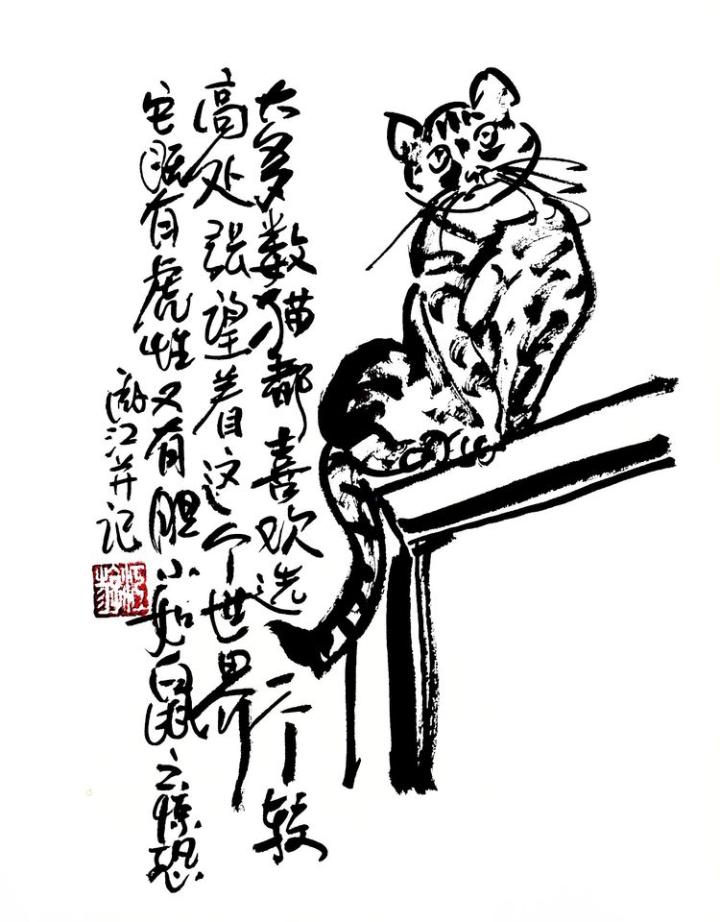 大多数猫都喜欢选一个较
高处张望着这个世界
它既有虎性又有胆小如鼠之惊恐
江并记